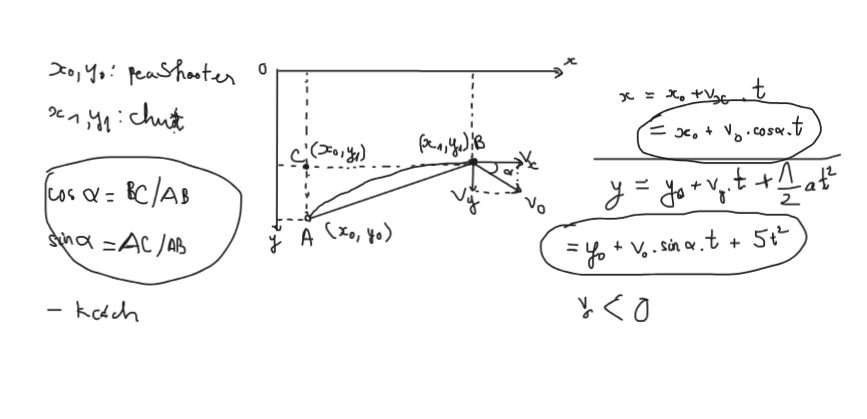 x₀, y₀: peaShooter
x₁, y₁: chuột
cos α = BC/AB
sin α = AC/AB
O
x
C (x₀, y₁)
(x₁, y₁) B
Vx
α
Vy
V₀
y
A (x₀, y₀)
x = x₀ + Vx . t
= x₀ + V₀ . cos α . t
y = y₀ + Vy . t + 1/2 at²
= y₀ + V₀ . sin α . t + 5t²